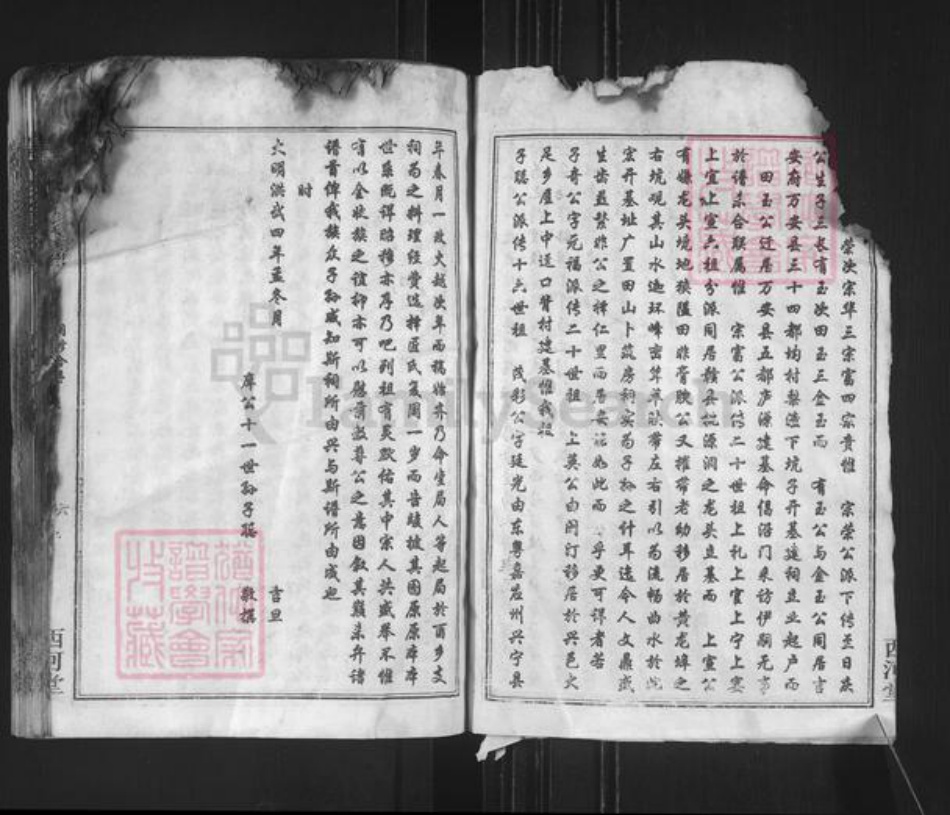 荣次宗华三宗富四宗贵惟 宗荣公派下传至日庆
公生子三长有玉次田玉三金玉而 有玉公与金玉公同居吉
安府万安县三十四都均村梨 下坑子开基建祠立业起户而
田玉公迁居万安县五都庐源建基命偈沿门来访伊嗣无
於谱未合联属惟 宗富公派传二十世祖上礼上官上宁上
上宣上宣六祖分派同居赣县 源洞之龙头立基而 上宣公
有嫌龙头境地狭隘田非膏腴公又携带老幼移居於黄龙埠之
右坑观其山水迤环峰密 带左右引以为流畅曲水於此
宏开基址广置田山卜筑房祠实为子孙之什耳迄今人文鼎盛
生齿益繁非公之择仁里而居安 如此而 乎更可得者若
子奇公字元福派传二十世祖 上英公由闵汀移居於兴邑大
足乡厦上中迳口背村建基惟我祖
子聪公派传十六世祖 茂彩公字廷光由东粤嘉应州兴宁县
年春月一改火越次年而稿始弃乃命堂局人等起局於酉乡文
祠为之料理经营选择匠氏复周一岁而告竣披其图原原本本
世系既详昭穆亦序乃吧列祖有灵默佑其中宗人共感举不惟
有以全收族之谊抑亦可以慰前 公之意因叙其颠末弁诸
谱首俾我族众子孙咸知斯祠所由兴与斯谱所由成也
时
大明洪武四年孟冬月 吉旦
庠公十一世孙子聪 敬撰
西河堂
西河堂
收藏
谱学会
FamilySearch